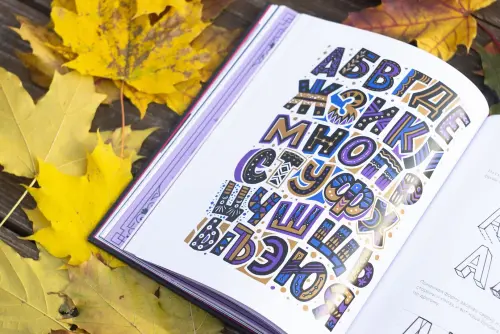 АБВГДЕ
ЖЗИКЛ
МНОПР
СТУФХ
ЦЧШЩЬ
ЫЪЭЮЯ
А